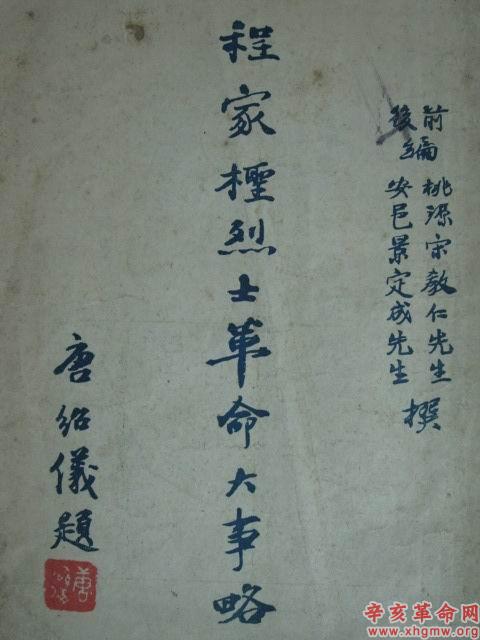 前編 桃源宋教仁先生
後編 安邑景定成先生 撰
程家檉烈士革命大事略
唐紹儀題
辛亥革命网
www.xhgmw.org